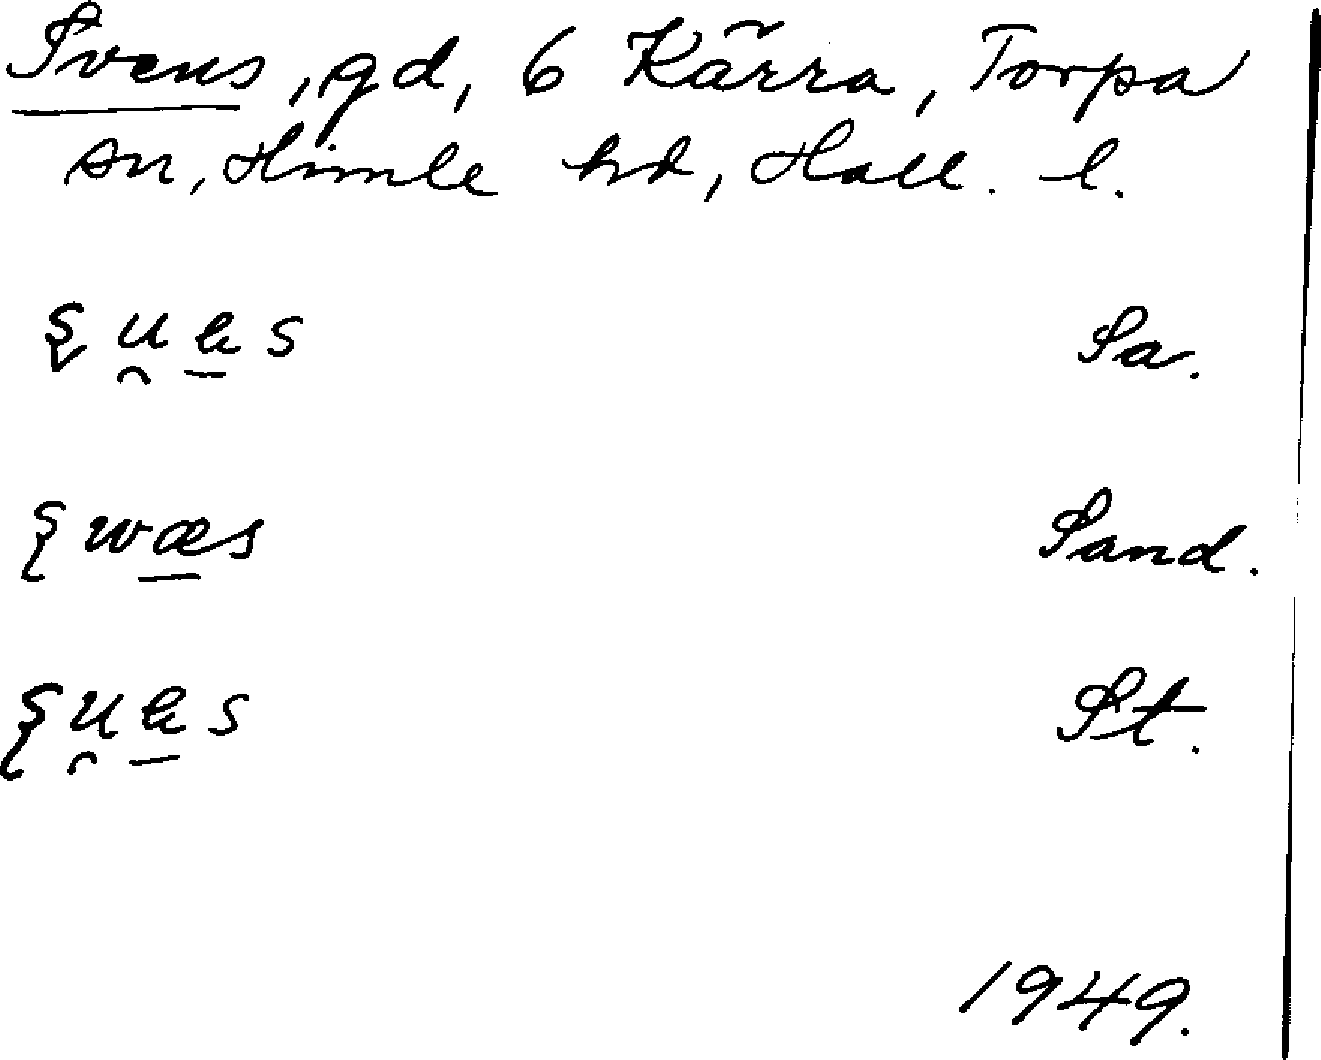 Svens, gd, 6 Kärra, Torpa
sn, Himle hd, Hall. l.
Sa.
Sand.
St.
1949.